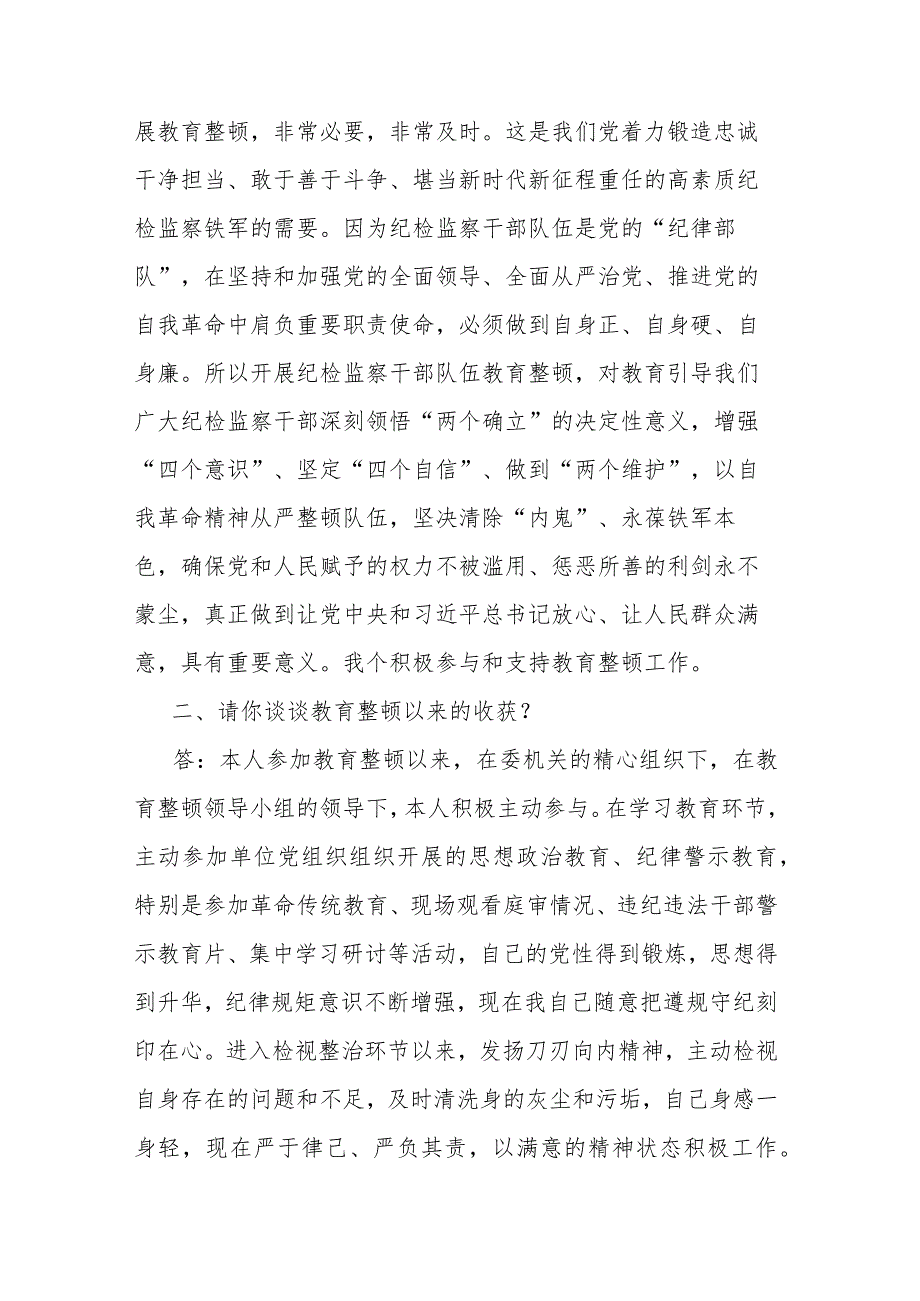 展教育整顿，非常必要，非常及时。这是我们党着力锻造忠诚
干净担当、敢于善于斗争、堪当新时代新征程重任的高素质纪
检监察铁军的需要。因为纪检监察干部队伍是党的“纪律部
队”，在坚持和加强党的全面领导、全面从严治党、推进党的
自我革命中肩负重要职责使命，必须做到自身正、自身硬、自
身廉。所以开展纪检监察干部队伍教育整顿，对教育引导我们
广大纪检监察干部深刻领悟“两个确立”的决定性意义，增强
“四个意识”、坚定“四个自信”、做到“两个维护”，以自
我革命精神从严整顿队伍，坚决清除“内鬼”、永葆铁军本
色，确保党和人民赋予的权力不被滥用、惩恶所善的利剑永不
蒙尘，真正做到让党中央和习近平总书记放心、让人民群众满
意，具有重要意义。我个积极参与和支持教育整顿工作。
二、请你谈谈教育整顿以来的收获？
答：本人参加教育整顿以来，在委机关的精心组织下，在教
育整顿领导小组的领导下，本人积极主动参与。在学习教育环节，
主动参加单位党组织组织开展的思想政治教育、纪律警示教育，
特别是参加革命传统教育、现场观看庭审情况、违纪违法干部警
示教育片、集中学习研讨等活动，自己的党性得到锻炼，思想得
到升华，纪律规矩意识不断增强，现在我自己随意把遵规守纪刻
印在心。进入检视整治环节以来，发扬刀刃向内精神，主动检视
自身存在的问题和不足，及时清洗身的灰尘和污垢，自己身感一
身轻，现在严于律己、严负其责，以满意的精神状态积极工作。